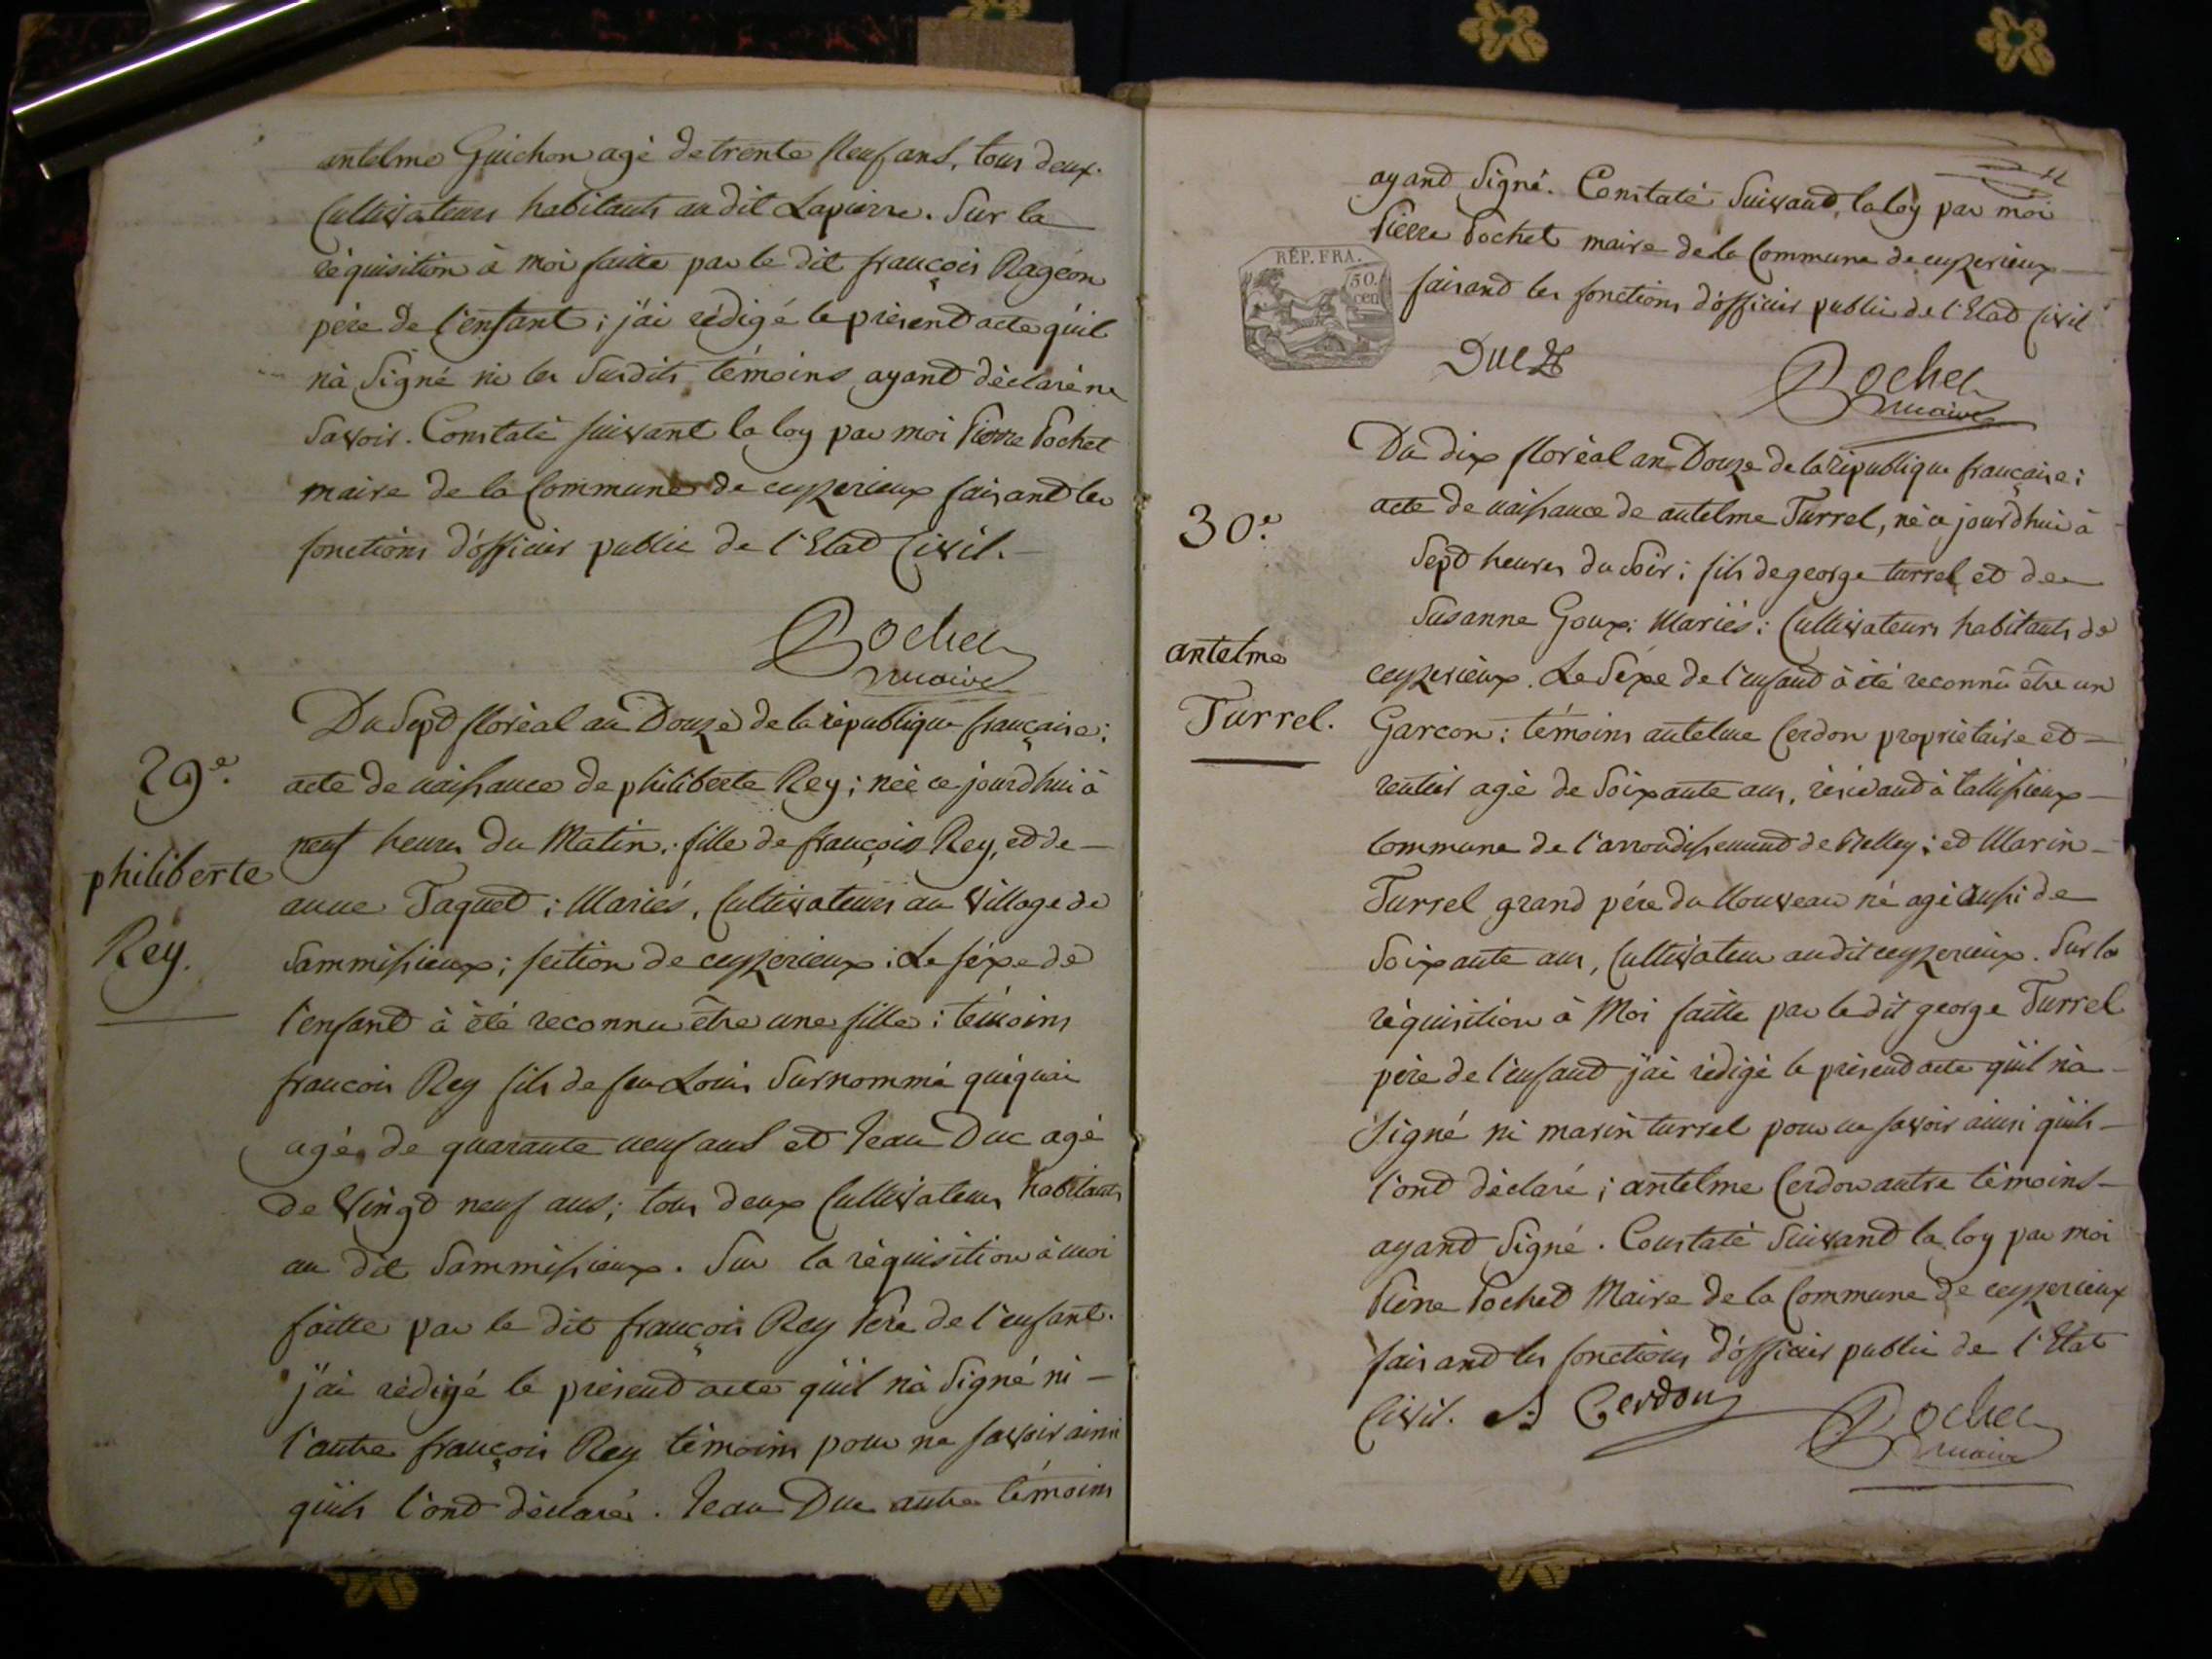 antelme Guichon agé de trente neuf ans, tous deux
Cultivateurs habitants au dit Lapierre. Sur la
réquisition à moi faitte par le dit françois Rageon
pére de l'enfant; j'ai rédigé le présend acte qu'il
n'à Signé ni les Susdits témoins ayand dèclaré ne
Savoir. Constaté suivant la loy par moi Pierre Pochet
maire de la Commune de ceyzerieux faisand les
fonctions d'officier public de l'Etad Civil.
Pochet
maire
29e.
philiberte
Rey.
Du Sepd floréal an Douze de la république française;
acte de naissance de philiberte Rey; née ce jourdhui à
neuf heures du Matin; fille de françois Rey, ed de
anne Taqued; Mariés, Cultivateurs au Village de
Sammissieux; section de ceyzerieux; Le sexe de
l'enfand à été reconnu être une fille; témoins
francois Rey fils de feu Louis Surnommé quiquai
agé de quarante neuf ans ed Jean Duc agé
de Vingd neuf ans; tous deux Cultivateurs habitants
au dit Sammissieux. Sur la réquisition à moi
faitte par le dit françois Rey Pére de l'enfant.
j'ai rédigé le présend acte qu'il n'à Signé ni
l'autre françois Rey témoins pour ne savoir ainsi
qu'ils l'ond dèclarés. Jean Duc autre témoins
ayand Signé. Constaté Suivand la loy par moi
Pierre Pochet maire de la Commune de ceyzerieux
REP. FRA.
50.
cen
faisand les fonctions d'officier public de l'Etad Civil
Duc
Pochet
maire
30e.
antelme
Turrel.
Du dix floréal an Douze de la république française;
acte de naissance de antelme Turrel, né ce jourd'hui à
Sepd heures du Soir; fils de george turrel ed de
Susanne Goux; Mariés; Cultivateurs habitants de
ceyzerieux. Le Séxe de l'enfand à été reconnû être un
Garcon; témoins antelme Cerdon propriétaire ed
rentier agé de Soixante ans, résidand à tallissieux
Commune de l'arrondissemend de Belley; ed Marin
Turrel grand pére du Nouveau né agé aussi de
Soixante ans, Cultivateur au dit ceyzerieux. Sur la
réquisition à Moi faitte par le dit george Turrel
père de l'enfand j'ai rédigé le présend acte qu'il n'à
Signé ni marin turrel pour ne savoir ainsi qu'ils
l'ond dèclaré; antelme Cerdon autre témoins
ayand Signé. Constaté Suivand la loy par moi
Pierre Pochet Maire de la Commune de ceyzerieux
faisand les fonctions d'officier public de l'Etat
Civil. A Cerdon
Pochet
maire